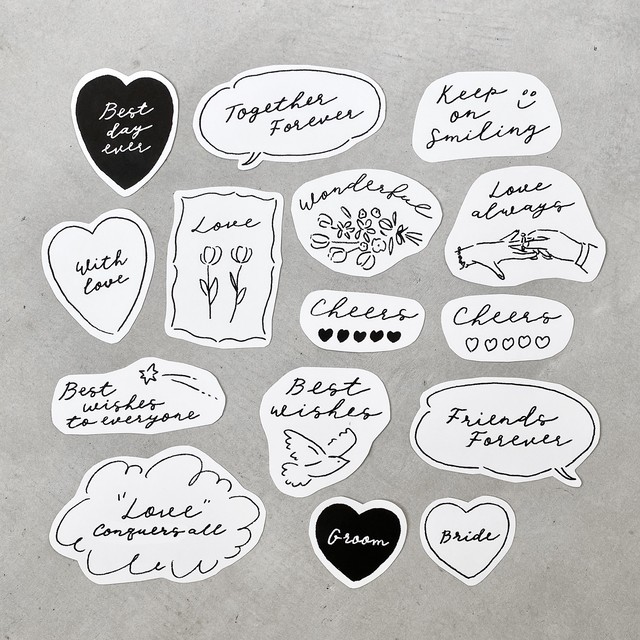 Best
day
ever
Together
Forever
Keep
on
Smiling
With
love
Love
Wonderful
Love
always
Cheers
Cheers
Best
wishes
to everyone
Best
wishes
Friends
Forever
"Love"
Conquers all
Groom
Bride